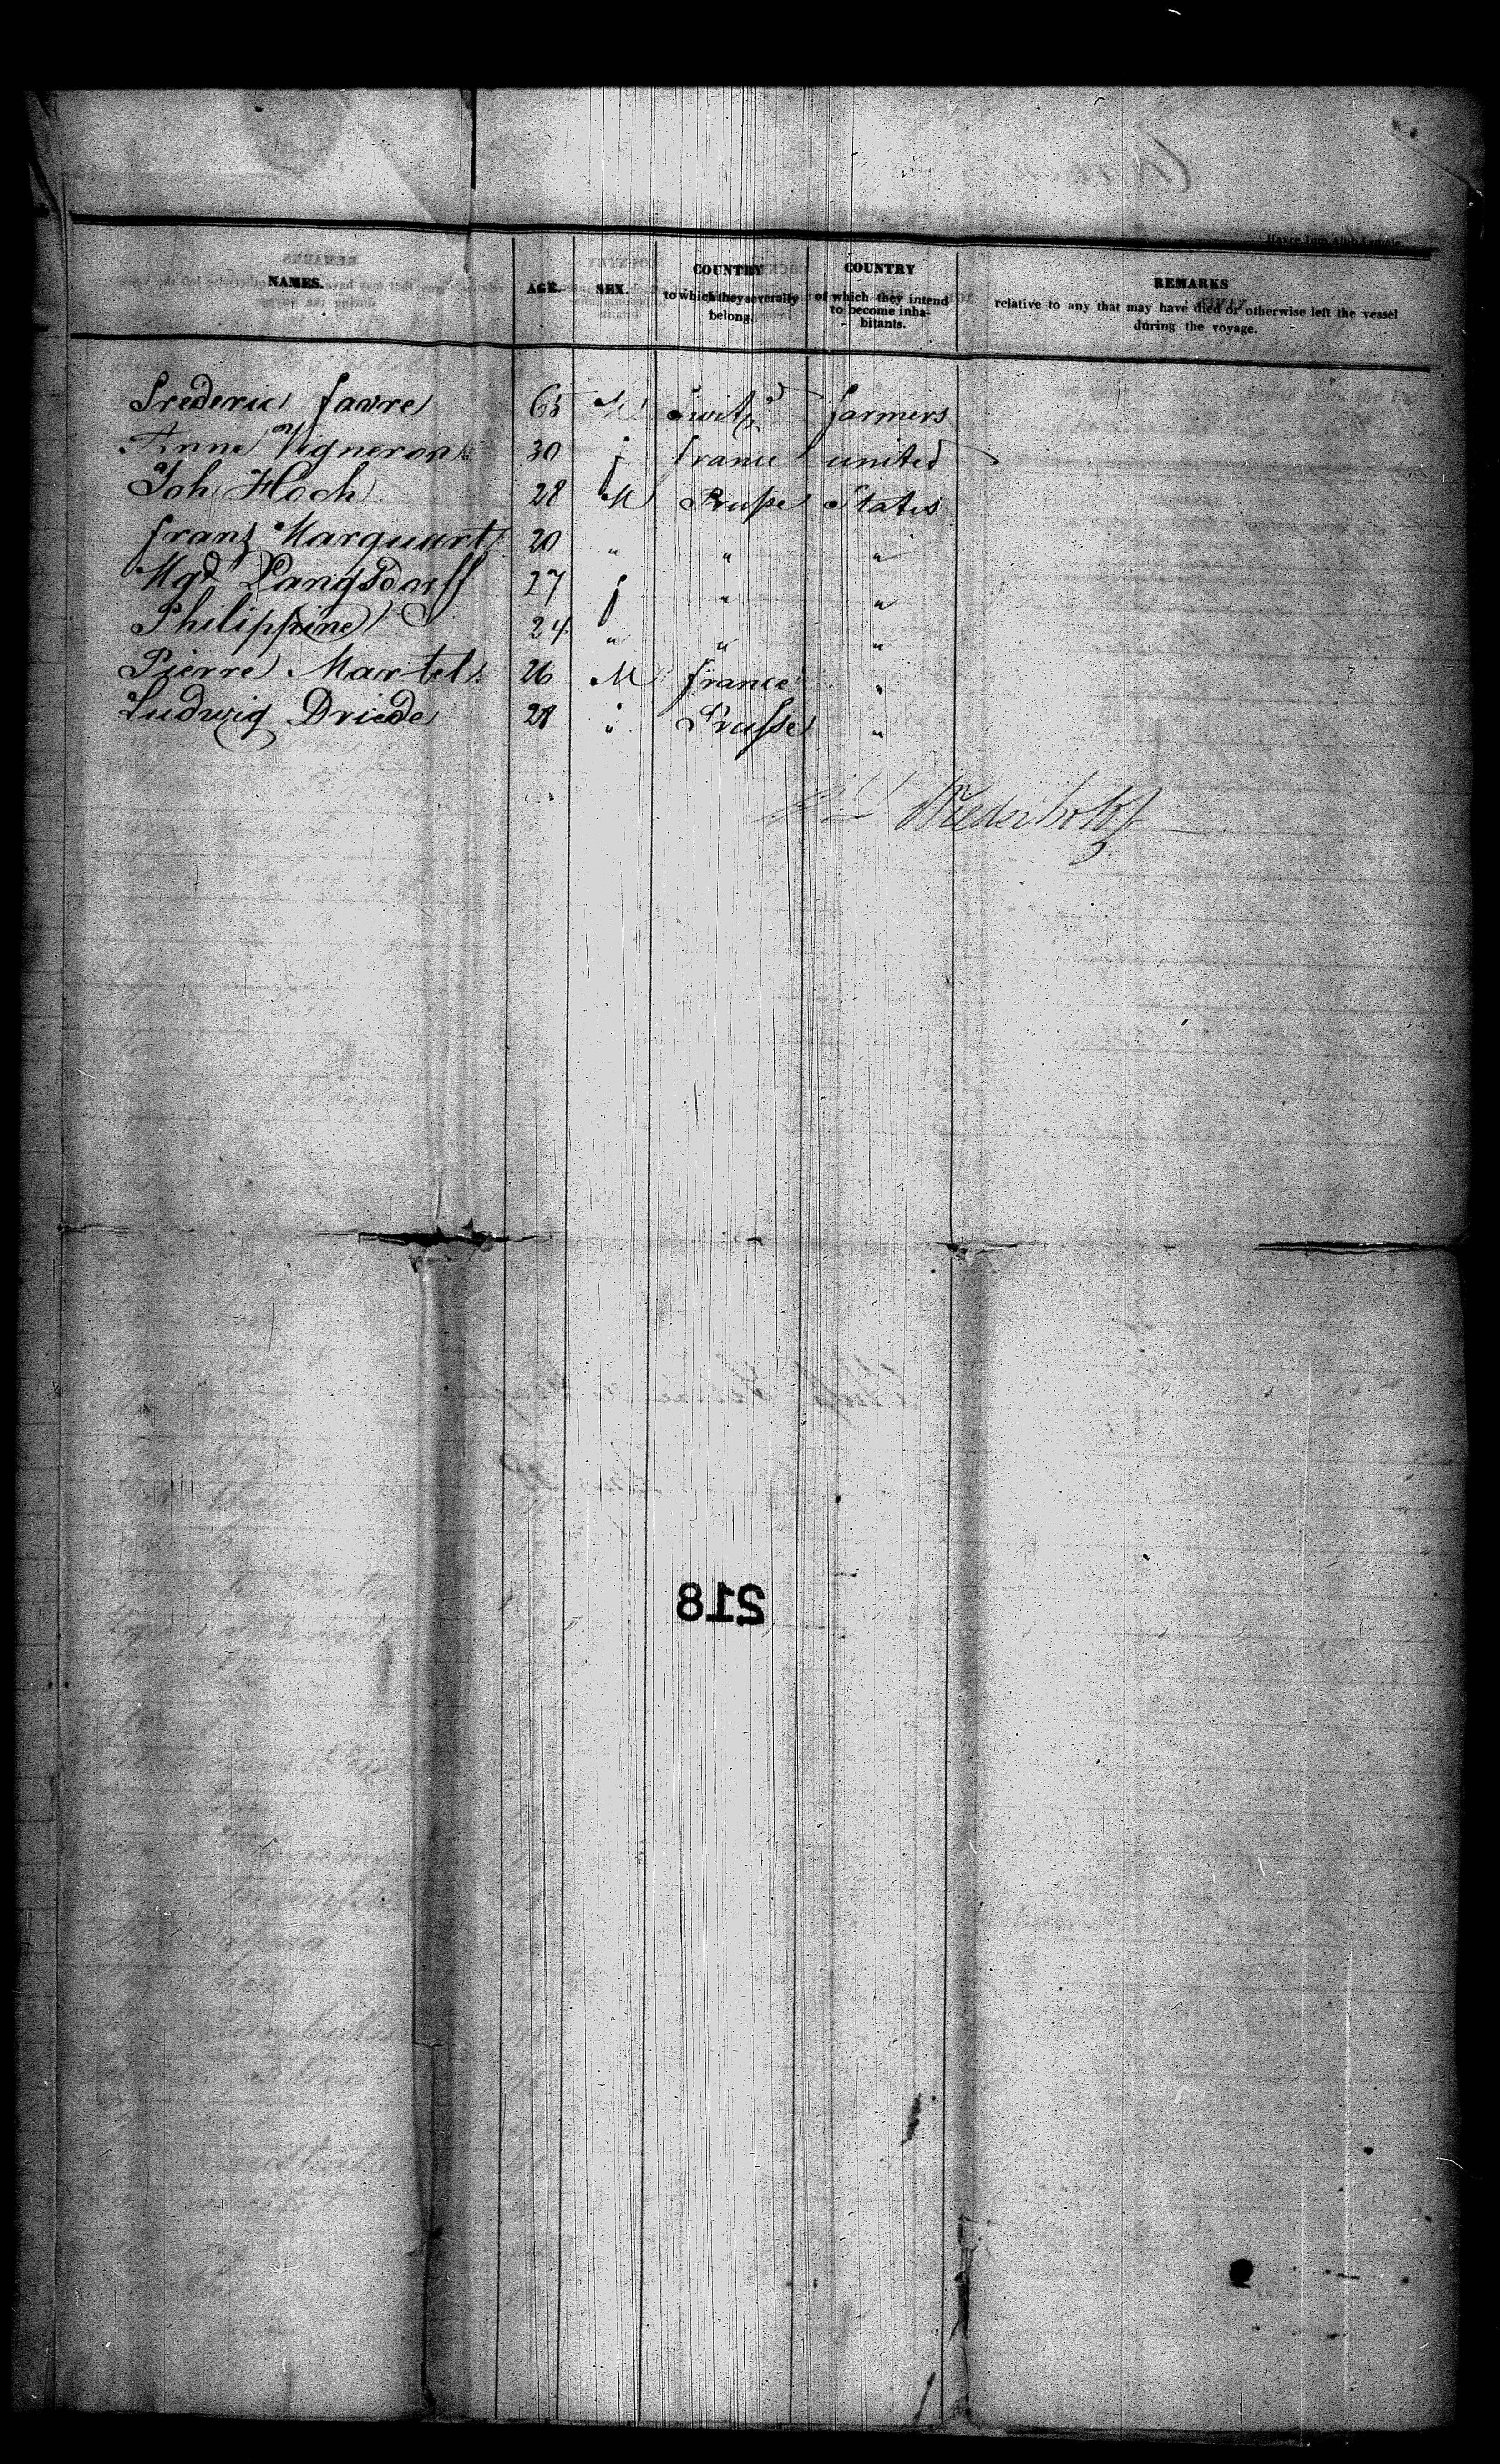 Havre Imp. Alph. Lemale.
NAMES. AGE. SEX. COUNTRY to which they severally belong. COUNTRY of which they intend to become inhabitants. REMARKS relative to any that may have died or otherwise left the vessel during the voyage.
Frederic favre 65 M Switzd farmers
Anne Vigneron 30 f france united
Joh Hoch 28 M Prusse States
franz Marquart 20 " " "
Mgd Langsdorff 27 f " "
Philippine 24 " " "
Pierre Martel 26 M france "
Ludwig Driede 28 " Prusse "
Wiederholdt
218